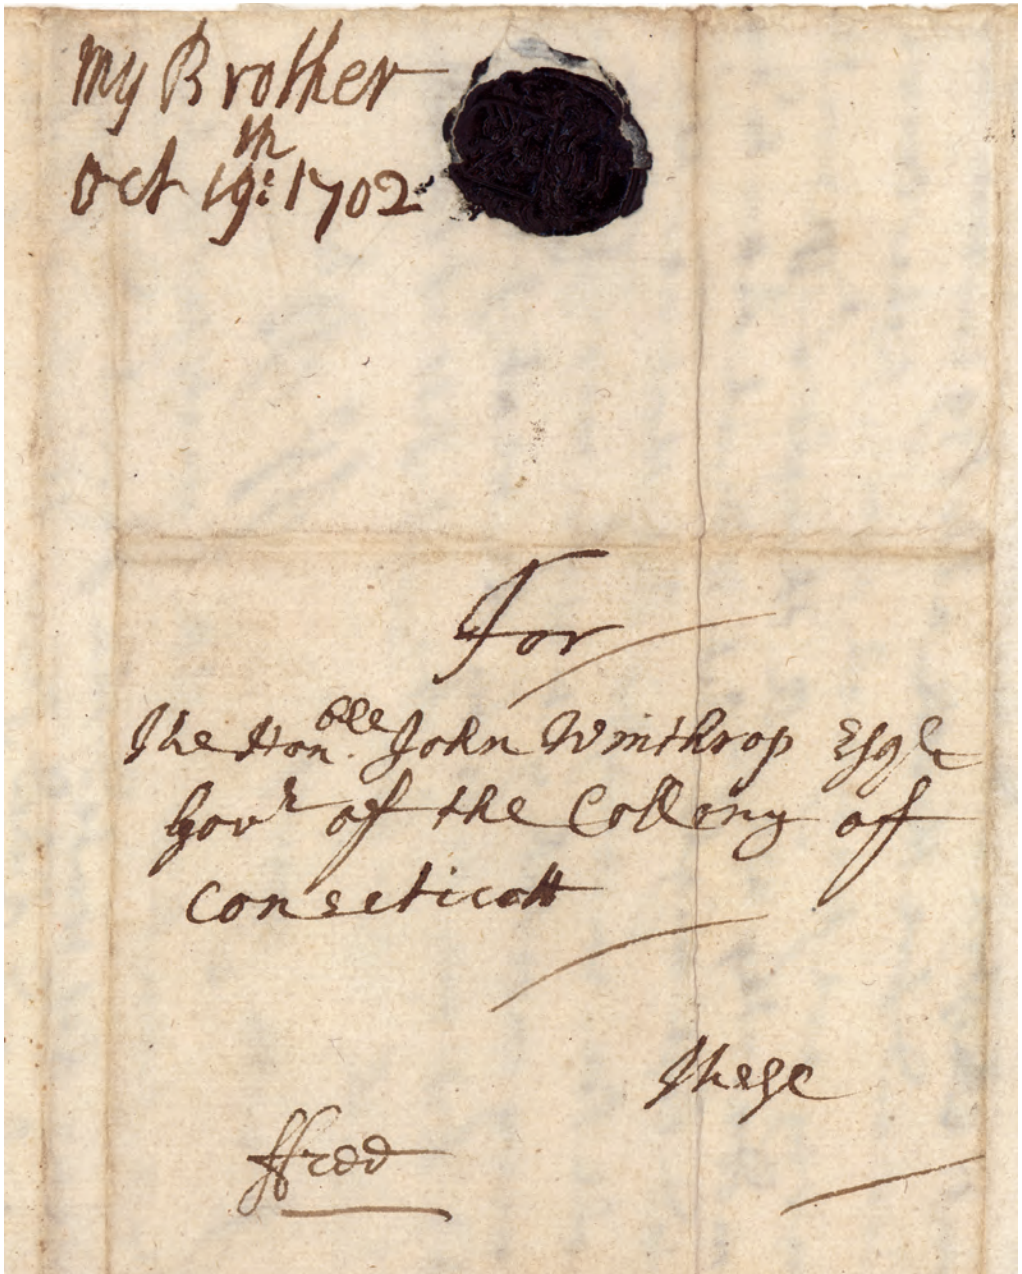 My Brother
Oct 19th: 1702
For
The Honble. John Winthrop Esqr
Govr of the Collony of
Conecticott
These
ffred